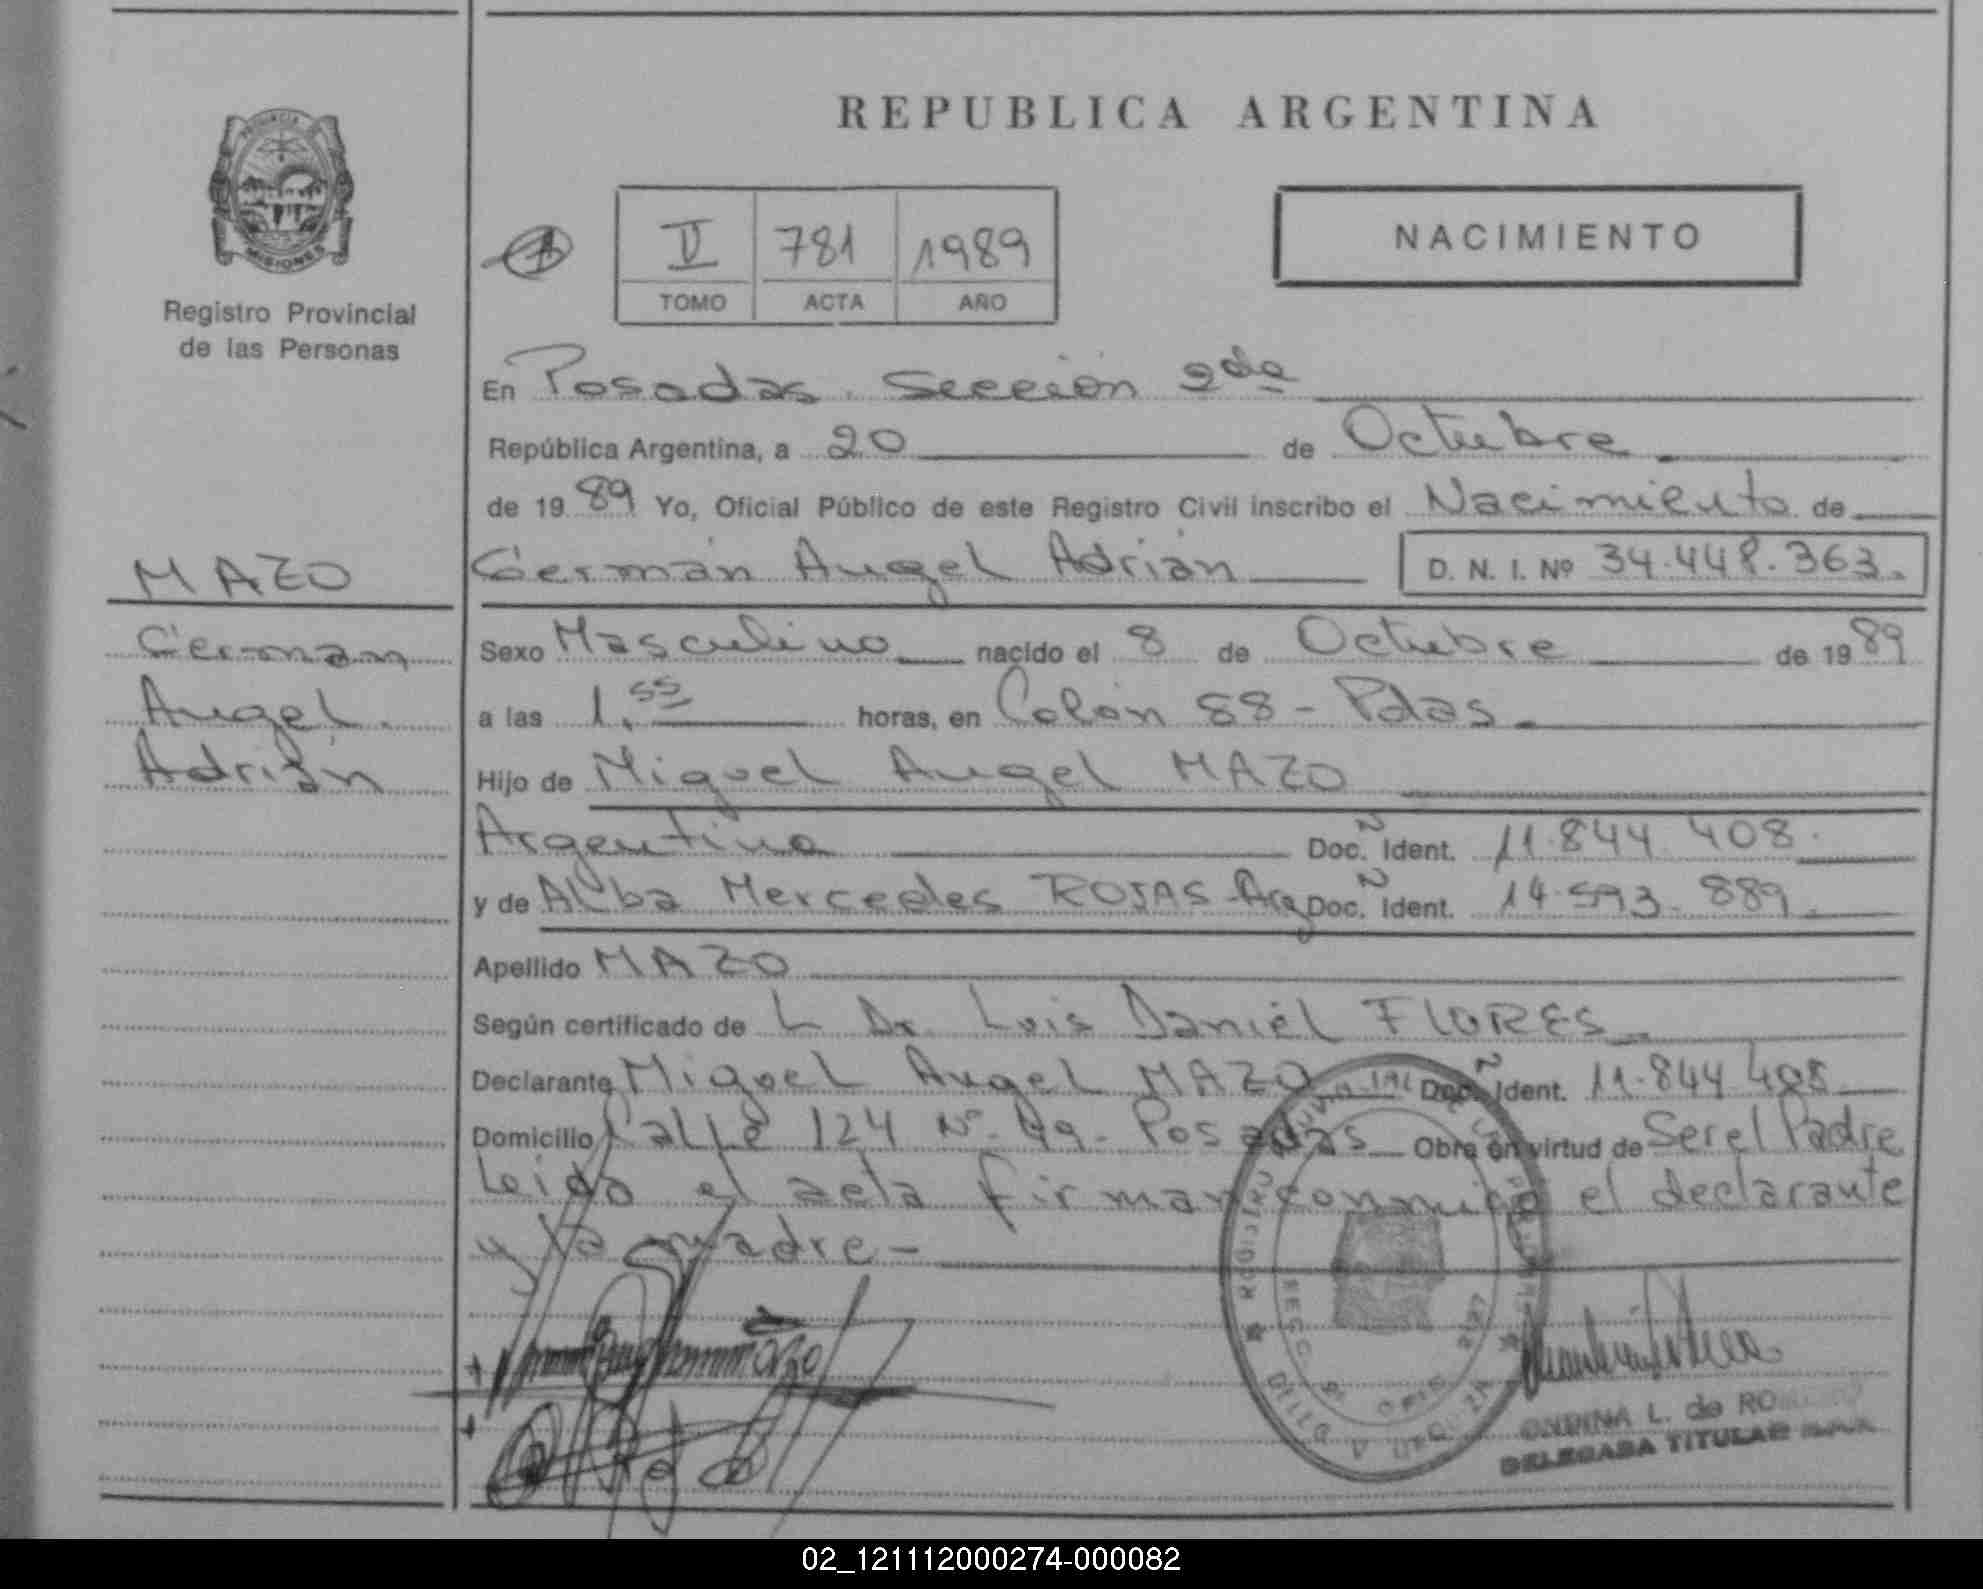 REPUBLICA ARGENTINA
PROVINCIA DE
MISIONES
Registro Provincial
de las Personas
V 781 1989
TOMO ACTA AÑO
NACIMIENTO
En Posadas. Sección 2da
República Argentina, a 20 de Octubre
de 1989 Yo, Oficial Público de este Registro Civil inscribo el Nacimiento de
MAZO
Germán Angel Adrián D. N. I. Nº 34.448.363.
German
Angel.
Adrián
Sexo Masculino nacido el 8 de Octubre de 1989
a las 1.55 horas, en Colón 88 - Pdas.
Hijo de Miguel Angel MAZO
Argentino Doc. Ñ Ident. 11.844.408.
y de Alba Mercedes ROJAS-Arg Doc. Ñ Ident. 14.593.889.
Apellido MAZO
Según certificado de L Dr. Luis Daniel FLORES
Declarante Miguel Angel MAZO Doc. Ñ Ident. 11.844.408
Domicilio Calle 124 Nº 49- Posadas Obra en virtud de Ser el Padre
Leida el acta firman conmigo el declarante
y la madre-
ONDINA L. de
DELEGADA TITULAR
02_121112000274-000082